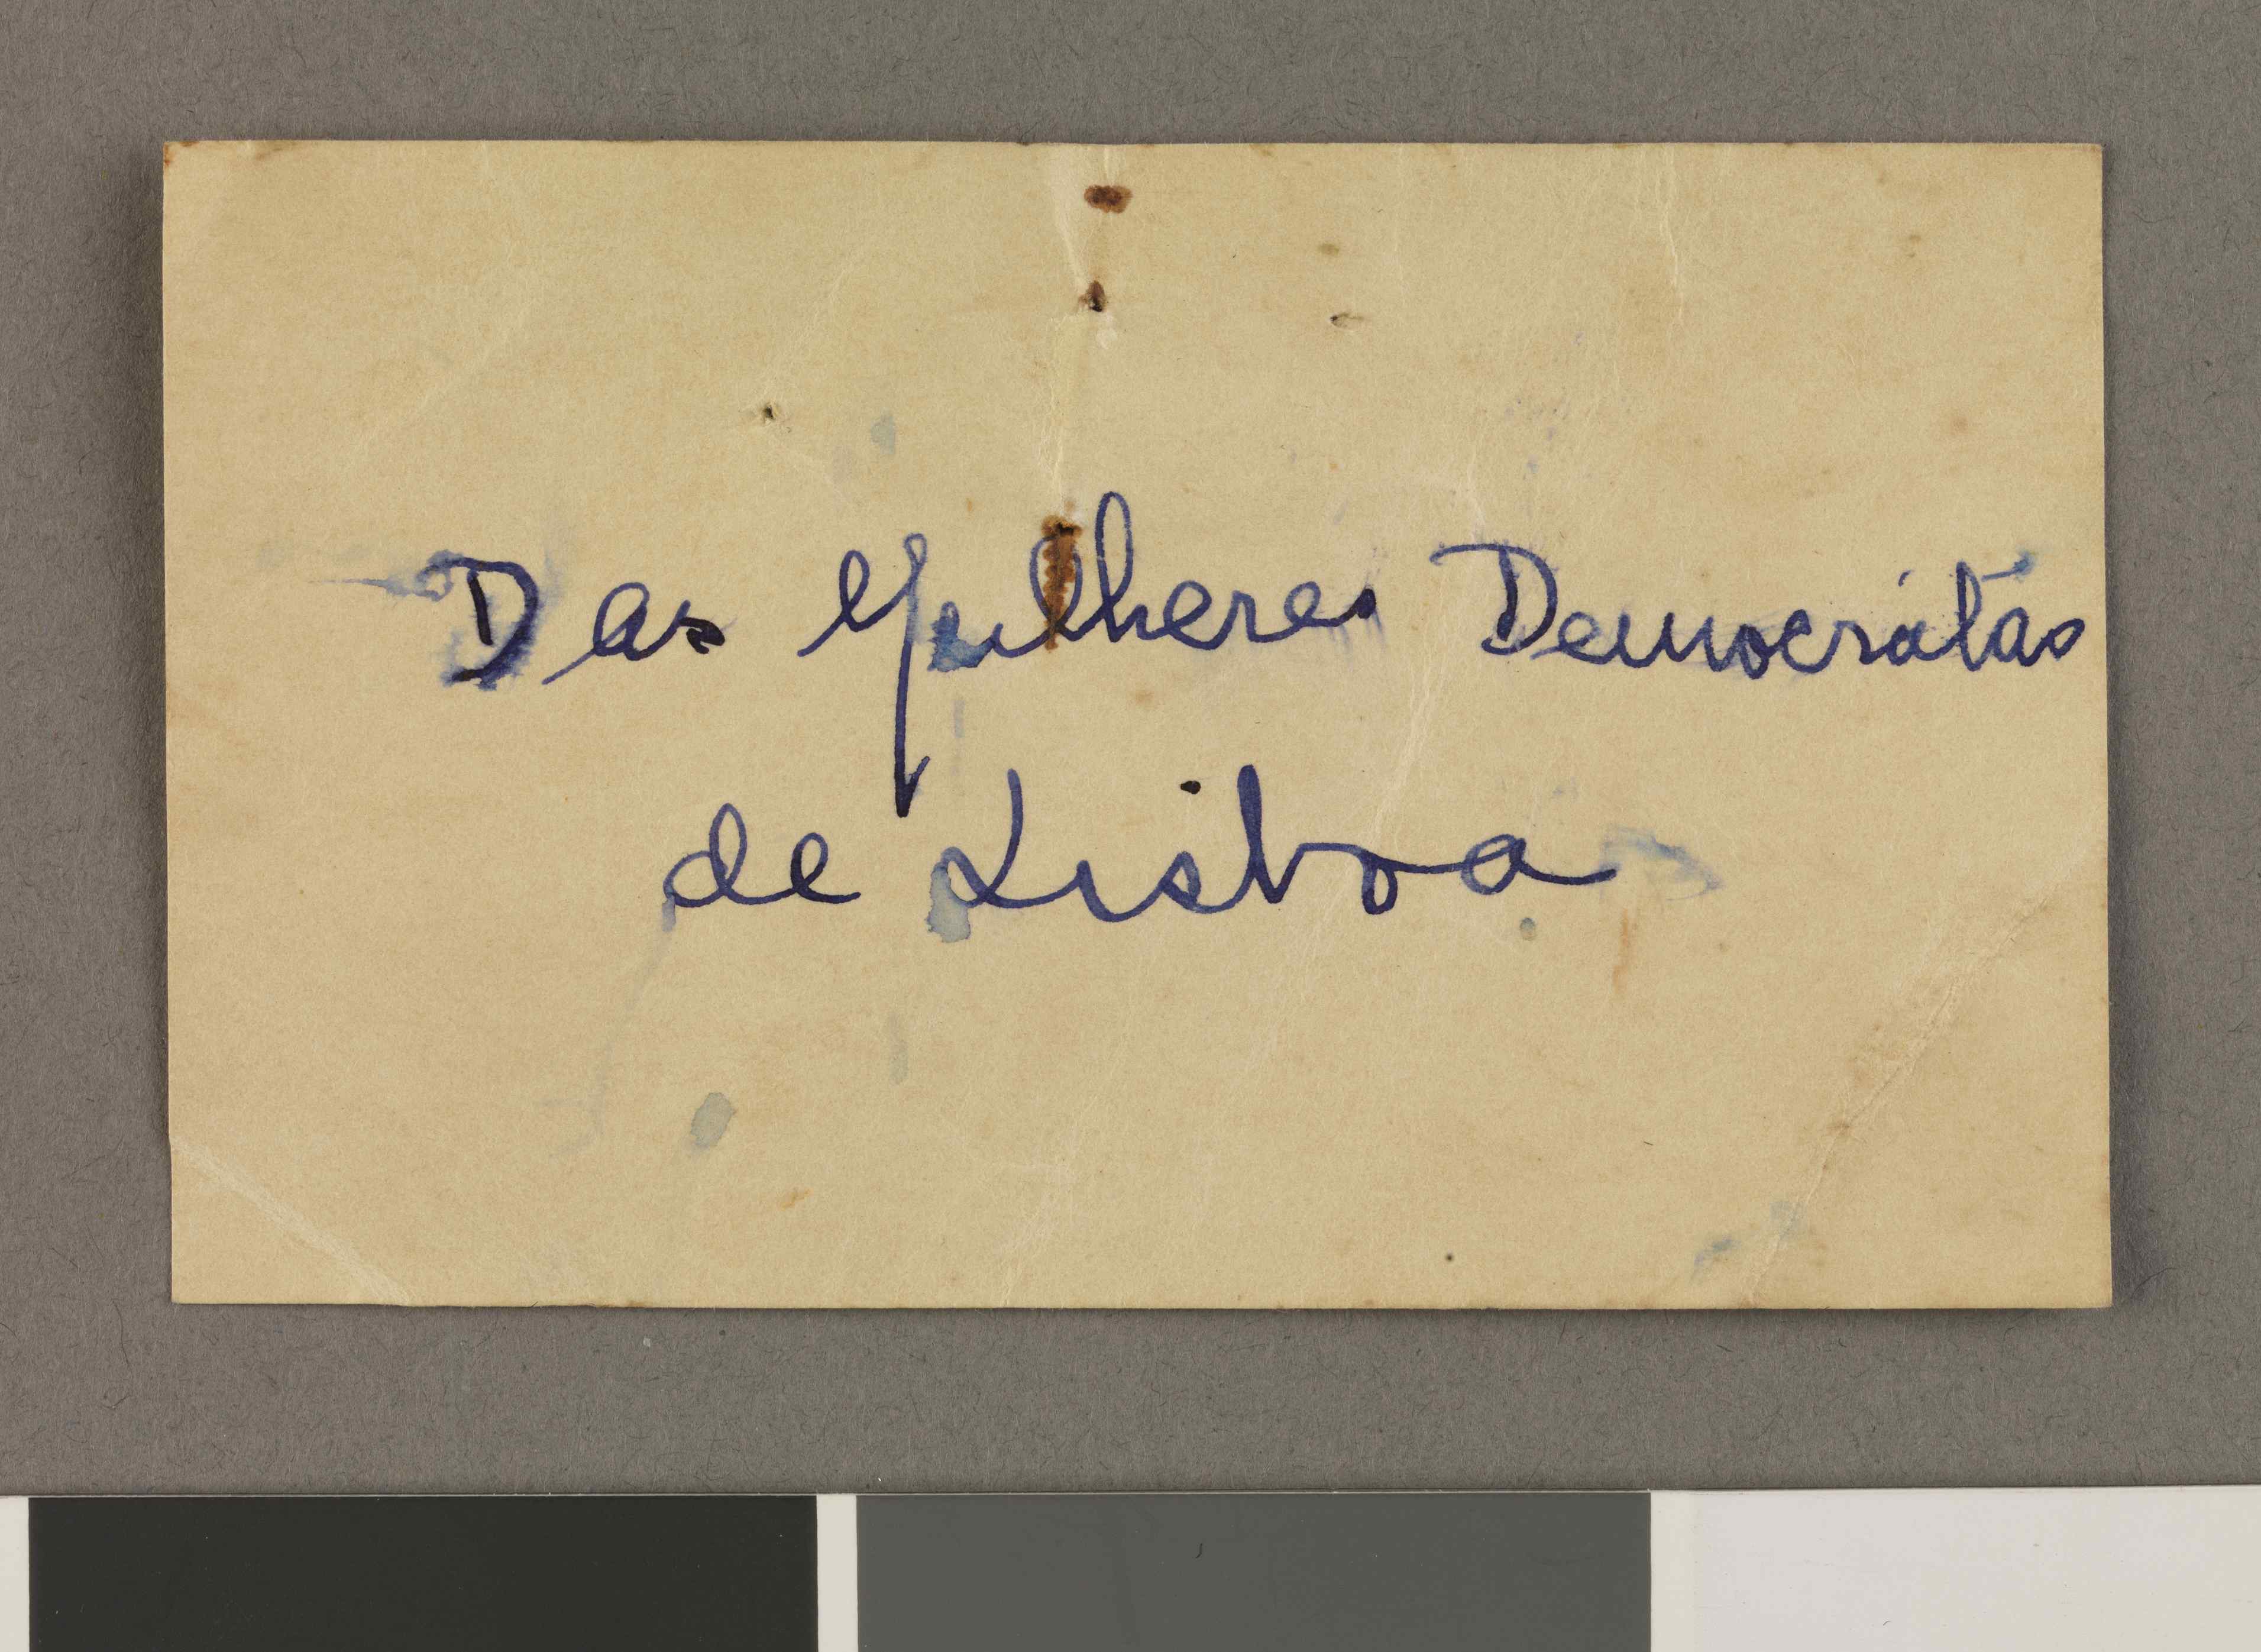 Das Mulheres Democrátas
de Lisboa